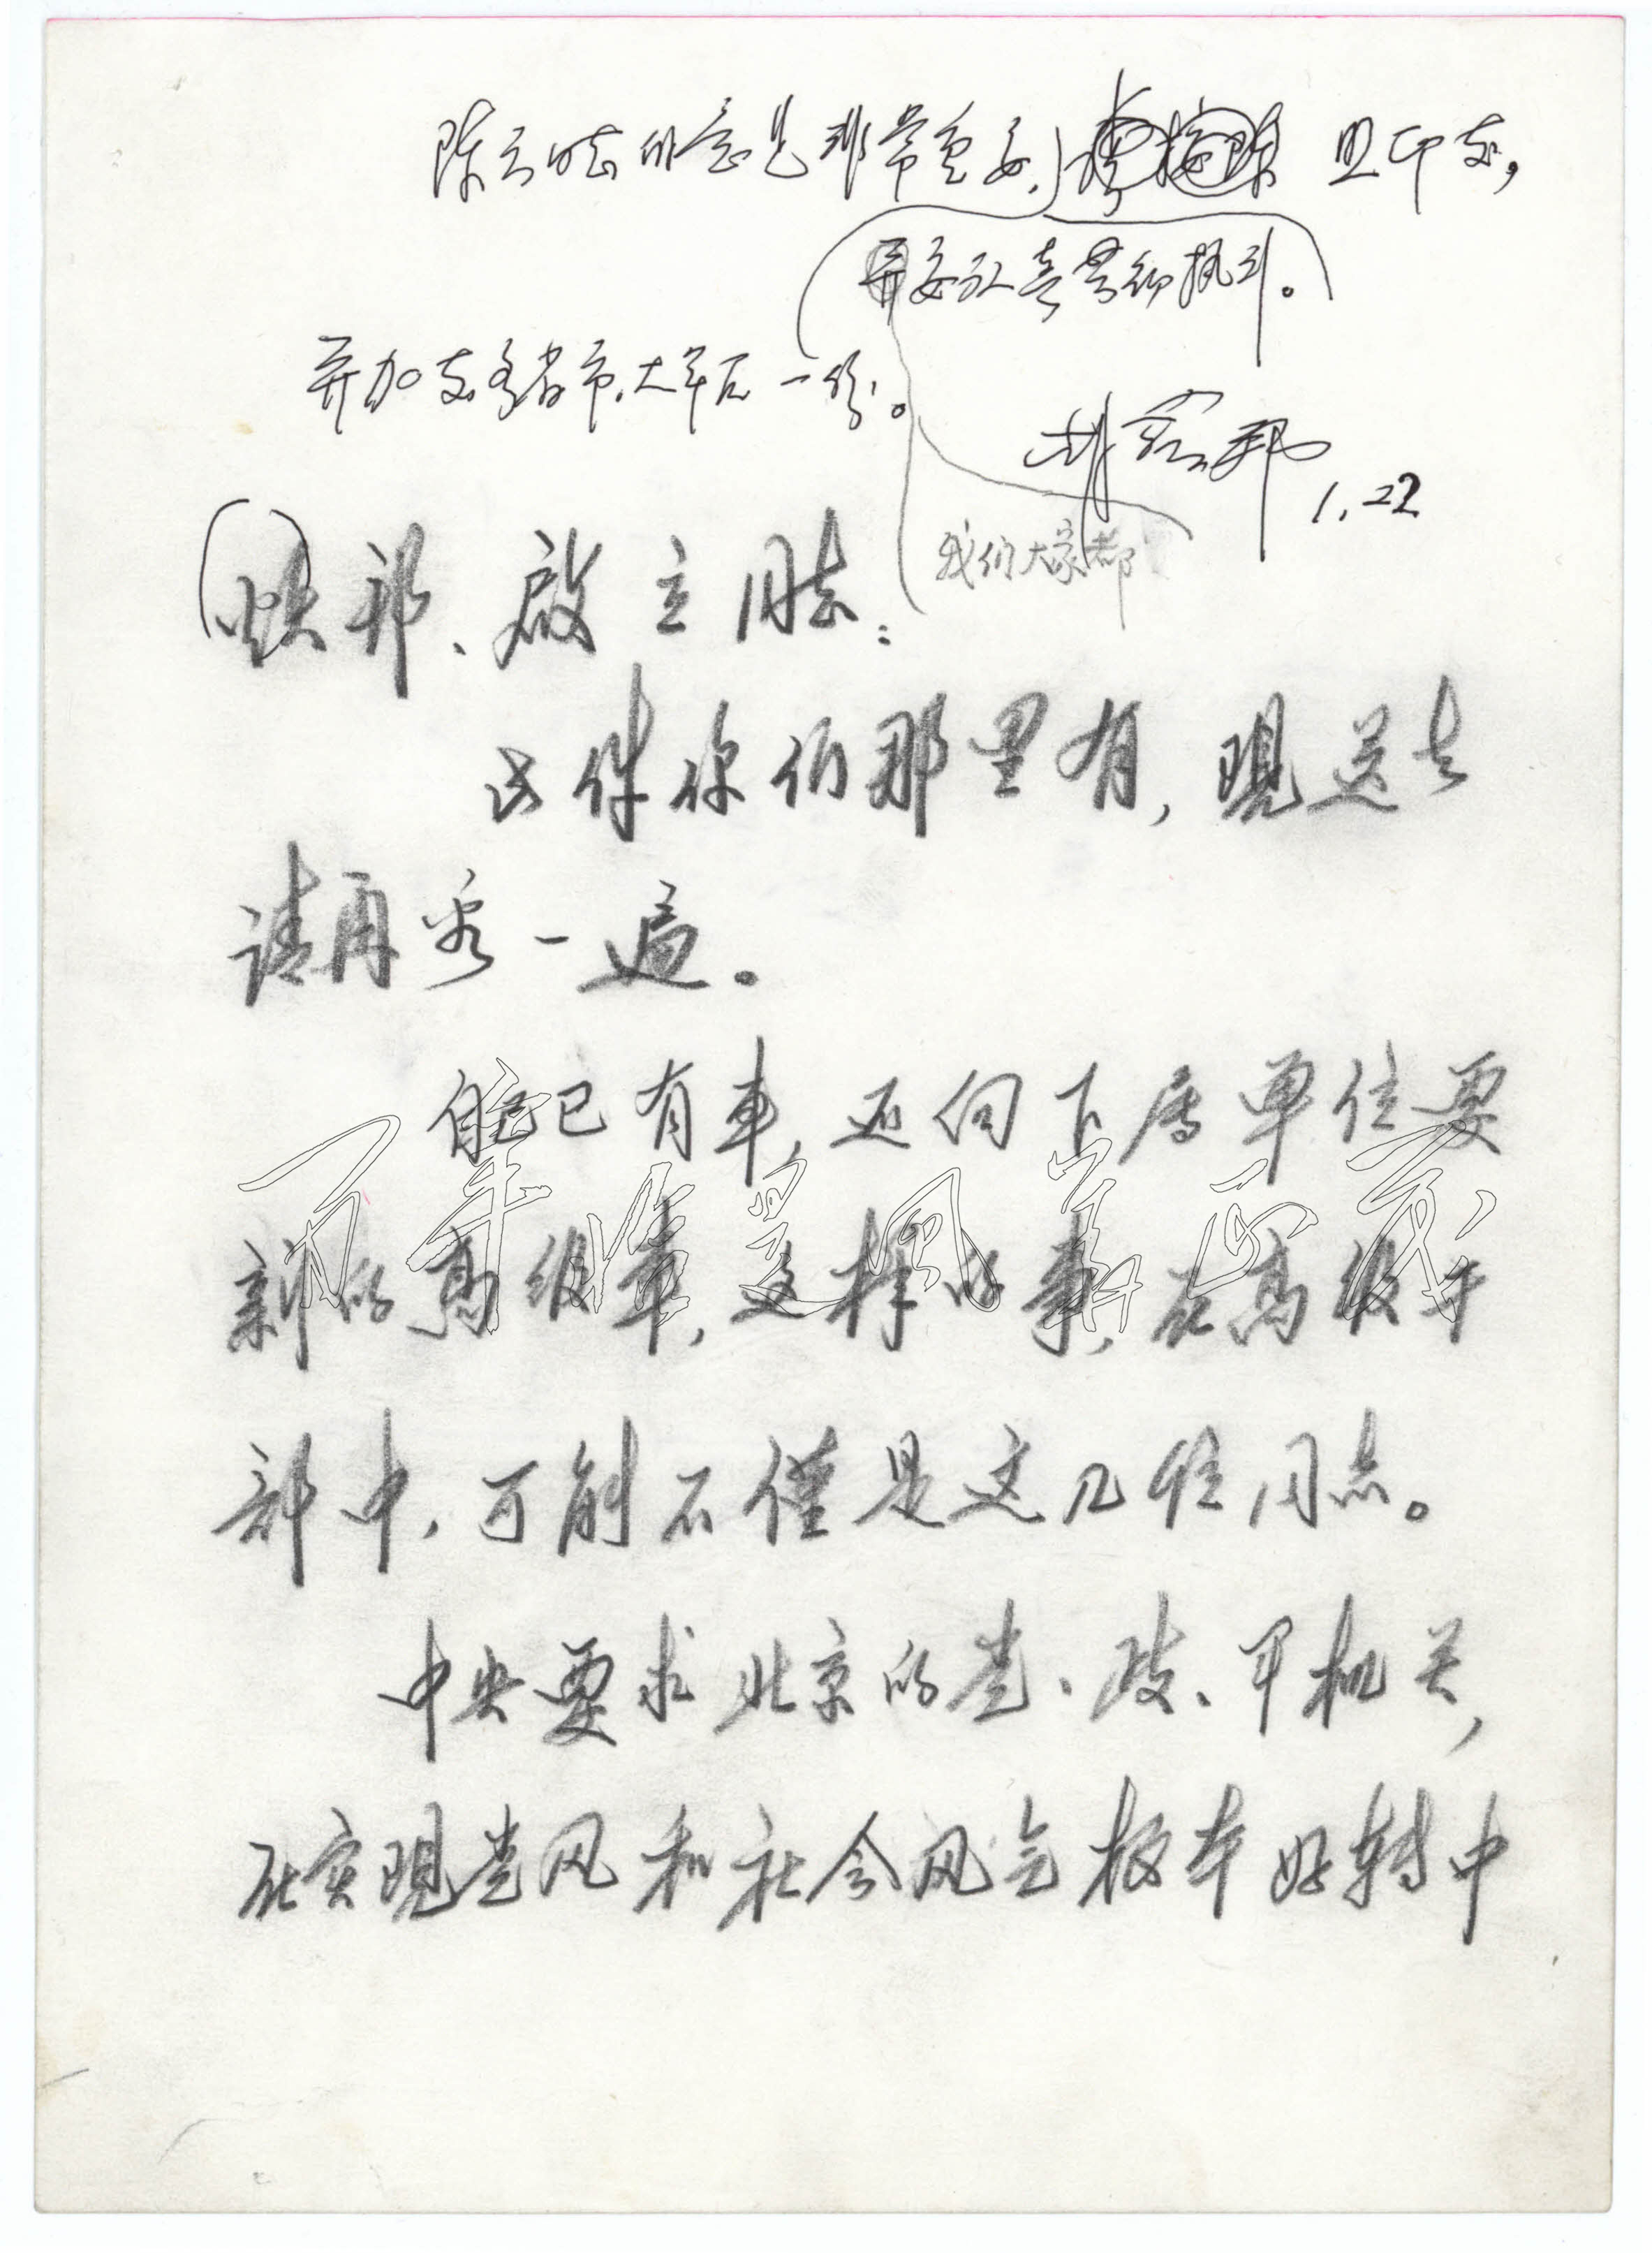 陈云同志的意见非常重要，且印发，
并要认真贯彻执行。
并加发各省市、大军区一份。
胡耀邦
1.22
我们大家都
耀邦、启立同志：
此件你们那里有，现送去
请再看一遍。
自己已有車，还向下属单位要
新的高级車，这样的事，在高级干
部中，可能不僅是这几位同志。
中央要求北京的党、政、军机关，
在实現党风和社会风气根本好转中